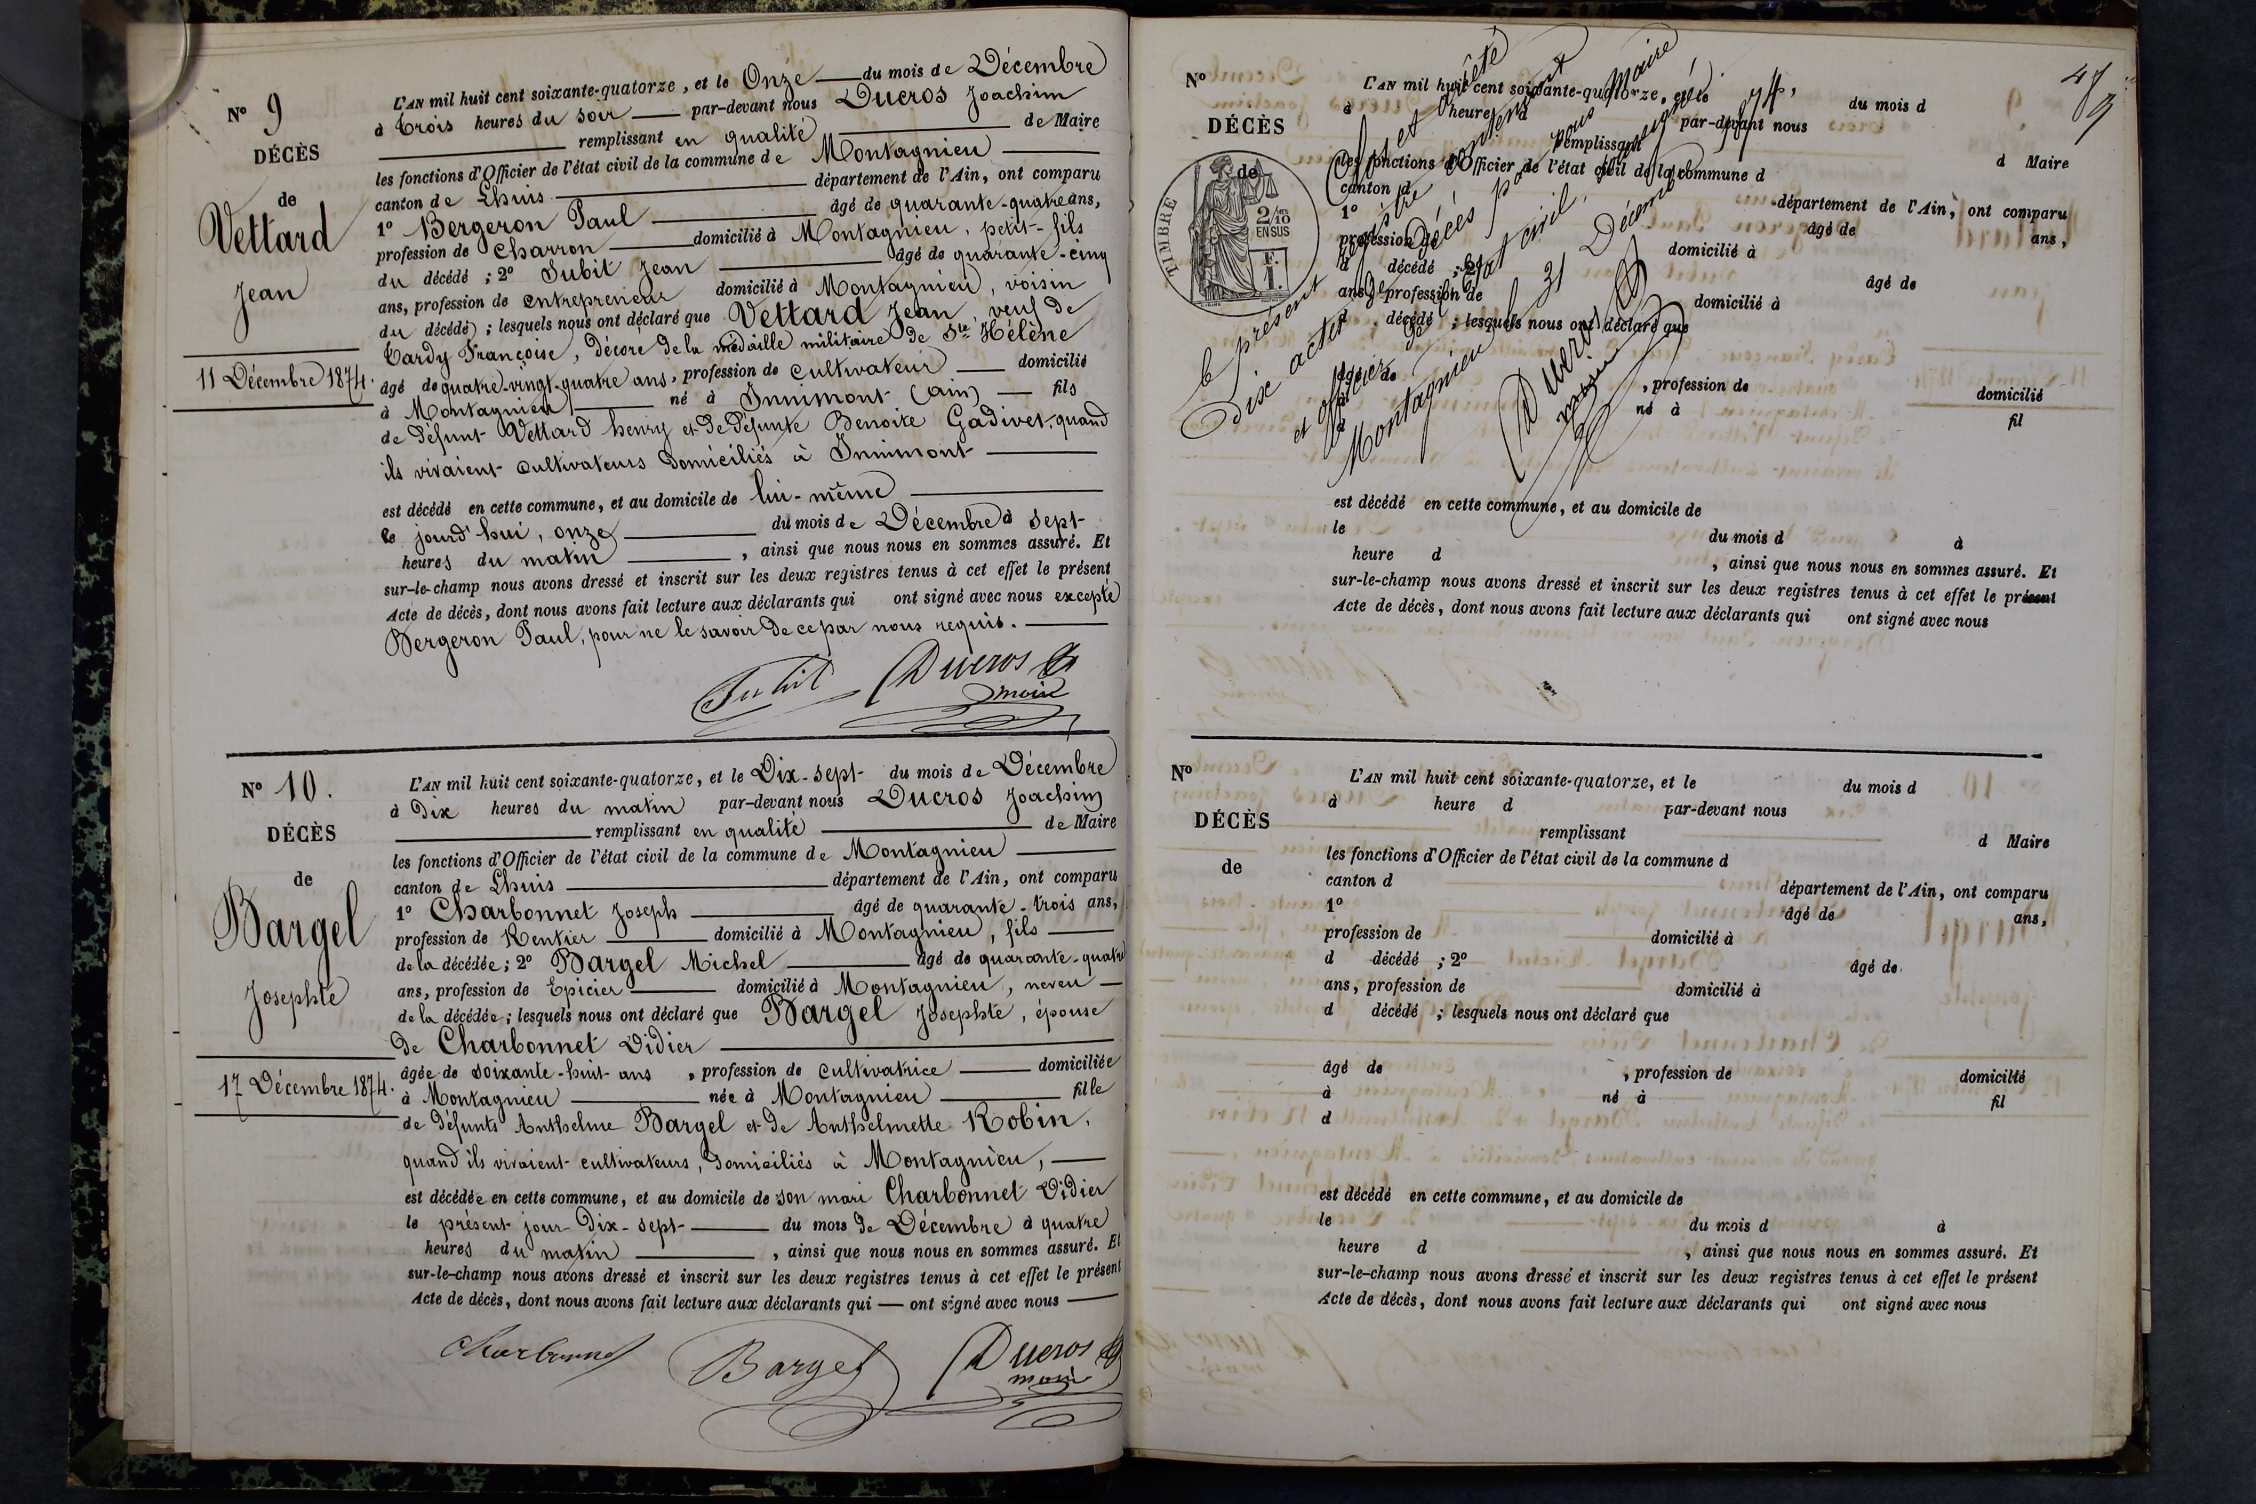 Nº 9
DÉCÈS
de
Vettard
Jean
11 Décembre 1874.
L'AN mil huit cent soixante-quatorze, et le Onze du mois de Décembre
à Trois heures du soir par-devant nous Ducros Joachim
remplissant en qualité de Maire
les fonctions d'Officier de l'état civil de la commune de Montagnieu
canton de Lhuis département de l'Ain, ont comparu
1º Bergeron Paul âgé de quarante-quatre ans,
profession de Charron domicilié à Montagnieu, petit-fils
du décédé; 2º Jubit Jean âgé de quarante-cinq
ans, profession de entrepreneur domicilié à Montagnieu, voisin
du décédé; lesquels nous ont déclaré que Vettard Jean, veuf de
Tardy Françoise, Décoré de la médaille militaire de Ste Hélène
âgé de quatre-vingt-quatre ans, profession de cultivateur domicilié
à Montagnieu né à Innimont (ain) fils
de défunt Vettard henry et de défunte Benoite Gadivet, quand
ils vivaient cultivateurs domiciliés à Innimont
est décédé en cette commune, et au domicile de lui-même
le jourd'hui, onze du mois de Décembre à sept
heures du matin, ainsi que nous nous en sommes assuré. Et
sur-le-champ nous avons dressé et inscrit sur les deux registres tenus à cet effet le présent
Acte de décès, dont nous avons fait lecture aux déclarants qui ont signé avec nous excepté
Bergeron Paul, pour ne le savoir de ce par nous requis.
Jubit Ducros
maire
Nº 10.
DÉCÈS
de
Bargel
Josephte
17 Décembre 1874.
L'AN mil huit cent soixante-quatorze, et le Dix-sept du mois de Décembre
à Dix heures du matin par-devant nous Ducros Joachim
remplissant en qualité de Maire
les fonctions d'Officier de l'état civil de la commune de Montagnieu
canton de Lhuis département de l'Ain, ont comparu
1º Charbonnet Joseph âgé de quarante-trois ans,
profession de Rentier domicilié à Montagnieu, fils
de la décédée; 2º Bargel Michel âgé de quarante-quatre
ans, profession de Epicier domicilié à Montagnieu, neveu
de la décédée; lesquels nous ont déclaré que Bargel Josephte, épouse
de Charbonnet Didier
âgée de soixante-huit ans, profession de cultivatrice domiciliée
à Montagnieu née à Montagnieu fille
de défunts Anthelme Bargel et de Anthelmette Robin,
quand ils vivaient cultivateurs, domiciliés à Montagnieu,
est décédée en cette commune, et au domicile de son mari Charbonnet Didier
le présent jour Dix-sept du mois de Décembre à quatre
heures du matin, ainsi que nous nous en sommes assuré. Et
sur-le-champ nous avons dressé et inscrit sur les deux registres tenus à cet effet le présent
Acte de décès, dont nous avons fait lecture aux déclarants qui ont signé avec nous
Charbonnet Bargel Ducros
maire
Nº
DÉCÈS
de
TIMBRE
2/10
EN SUS
F.
1.
Clos et arrêté
le présent registre contenant
Dix actes de décès par nous Maire
et officier de l'état civil, soussigné.
Montagnieu le 31 Décembre 1874.
Ducros
maire
L'AN mil huit cent soixante-quatorze, et le du mois d
à heure d par-devant nous
remplissant d Maire
les fonctions d'Officier de l'état civil de la commune d
canton d département de l'Ain, ont comparu
1º âgé de ans,
profession de domicilié à
d décédé; 2º âgé de
ans, profession de domicilié à
d décédé; lesquels nous ont déclaré que
âgé de, profession de domicilié
à né à fil
d
est décédé en cette commune, et au domicile de
le du mois d à
heure d, ainsi que nous nous en sommes assuré. Et
sur-le-champ nous avons dressé et inscrit sur les deux registres tenus à cet effet le présent
Acte de décès, dont nous avons fait lecture aux déclarants qui ont signé avec nous
Nº
DÉCÈS
de
L'AN mil huit cent soixante-quatorze, et le du mois d
à heure d par-devant nous
remplissant d Maire
les fonctions d'Officier de l'état civil de la commune d
canton d département de l'Ain, ont comparu
1º âgé de ans,
profession de domicilié à
d décédé; 2º âgé de
ans, profession de domicilié à
d décédé; lesquels nous ont déclaré que
âgé de, profession de domicilié
à né à fil
d
est décédé en cette commune, et au domicile de
le du mois d à
heure d, ainsi que nous nous en sommes assuré. Et
sur-le-champ nous avons dressé et inscrit sur les deux registres tenus à cet effet le présent
Acte de décès, dont nous avons fait lecture aux déclarants qui ont signé avec nous